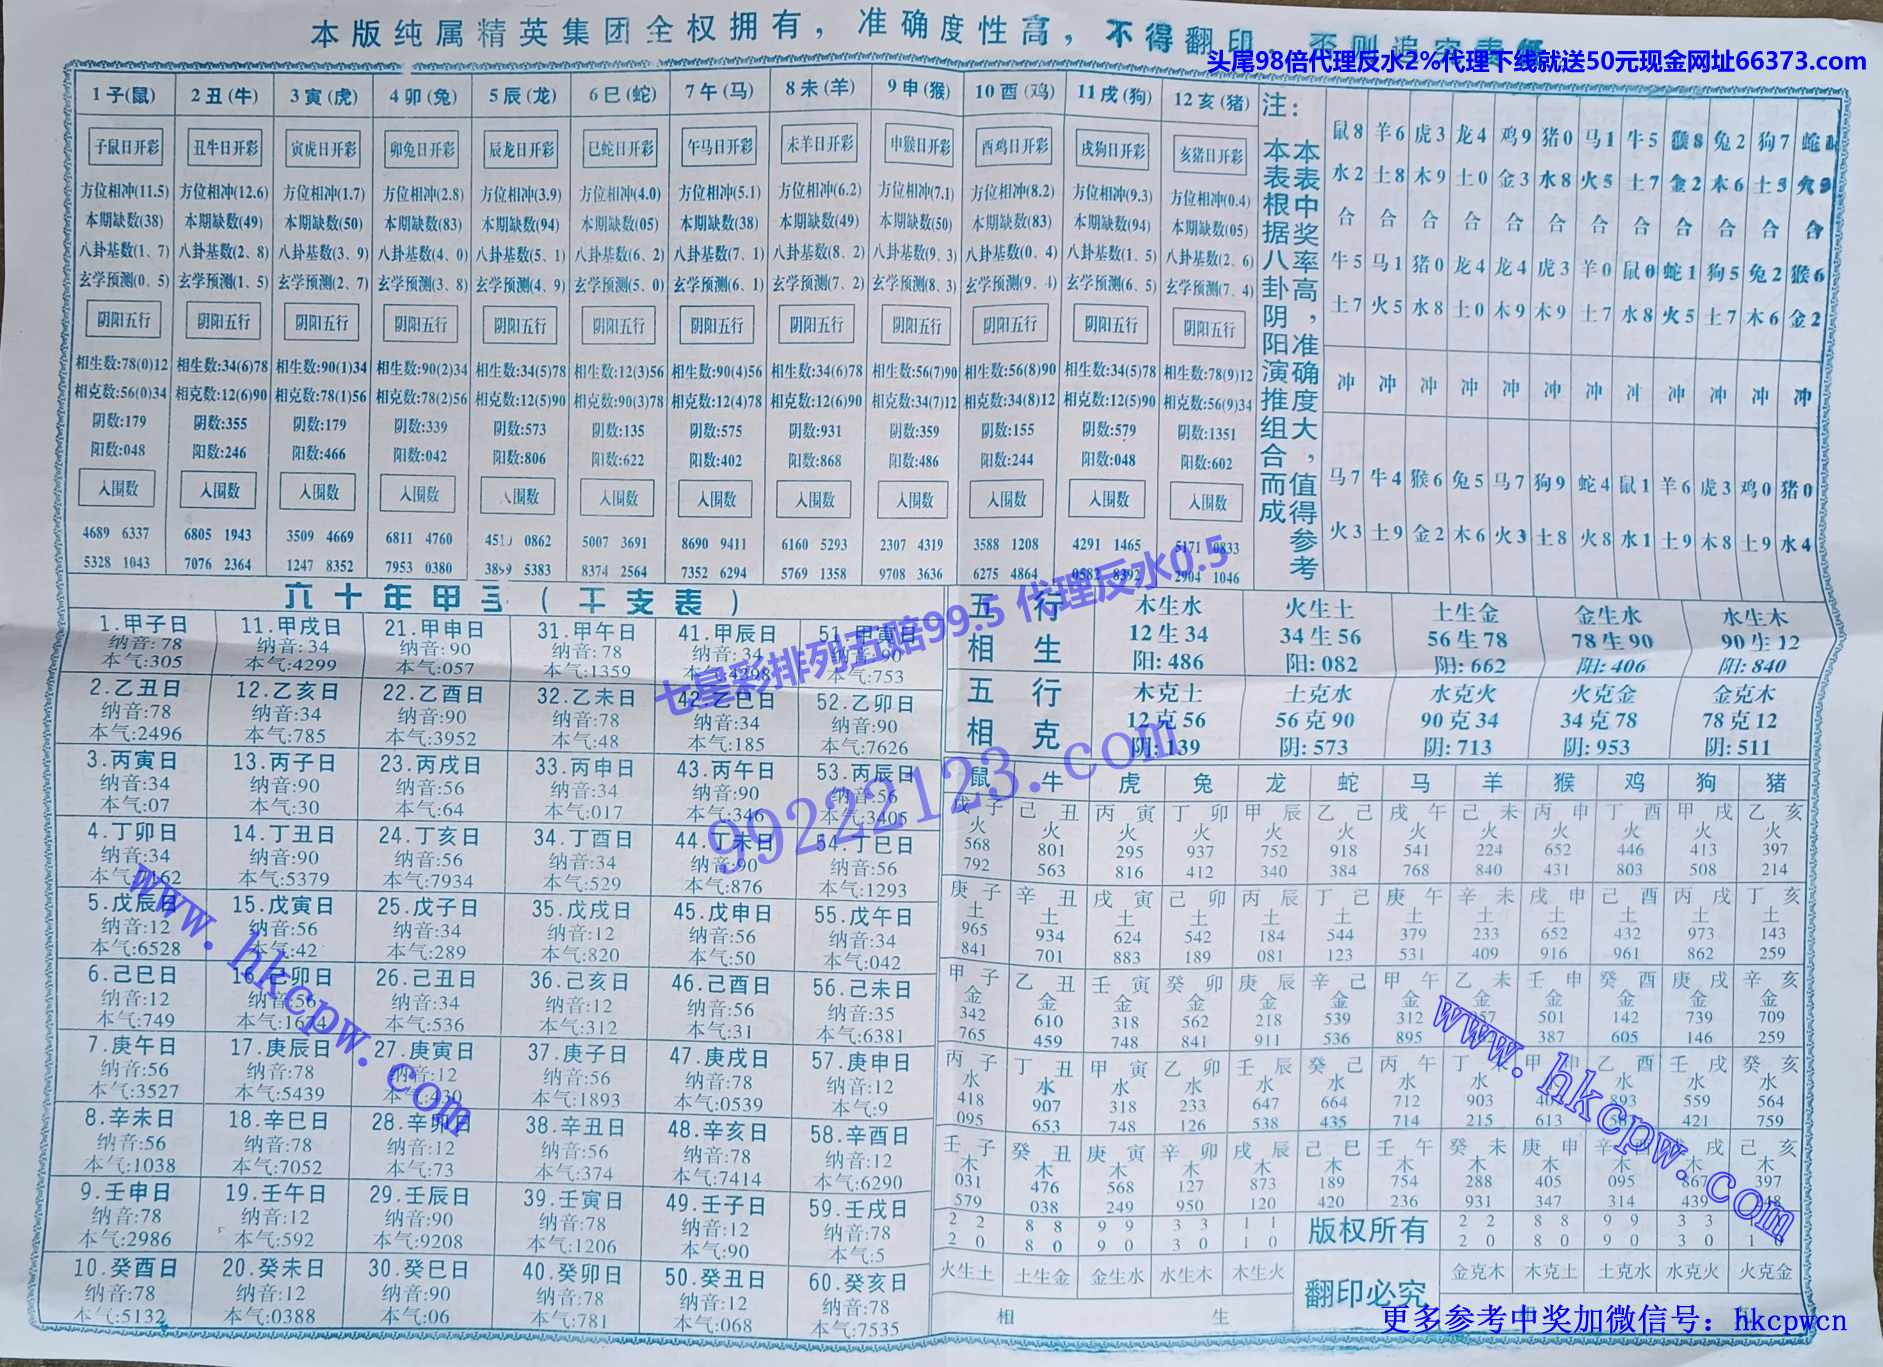 本版纯属精英集团全权拥有，准确度性高，不得翻印，否则追究责任
头尾98倍代理反水2%代理下线就送50元现金网址66373.com
1子(鼠) 2丑(牛) 3寅(虎) 4卯(兔) 5辰(龙) 6巳(蛇) 7午(马) 8未(羊) 9申(猴) 10酉(鸡) 11戌(狗) 12亥(猪)
子鼠日开彩 丑牛日开彩 寅虎日开彩 卯兔日开彩 辰龙日开彩 巳蛇日开彩 午马日开彩 未羊日开彩 申猴日开彩 酉鸡日开彩 戌狗日开彩 亥猪日开彩
方位相冲(11.5) 方位相冲(12.6) 方位相冲(1.7) 方位相冲(2.8) 方位相冲(3.9) 方位相冲(4.0) 方位相冲(5.1) 方位相冲(6.2) 方位相冲(7.1) 方位相冲(8.2) 方位相冲(9.3) 方位相冲(0.4)
本期缺数(38) 本期缺数(49) 本期缺数(50) 本期缺数(83) 本期缺数(94) 本期缺数(05) 本期缺数(38) 本期缺数(49) 本期缺数(50) 本期缺数(83) 本期缺数(94) 本期缺数(05)
八卦基数(1、7) 八卦基数(2、8) 八卦基数(3、9) 八卦基数(4、0) 八卦基数(5、1) 八卦基数(6、2) 八卦基数(7、1) 八卦基数(8、2) 八卦基数(9、3) 八卦基数(0、4) 八卦基数(1、5) 八卦基数(2、6)
玄学预测(0、5) 玄学预测(1、5) 玄学预测(2、7) 玄学预测(3、8) 玄学预测(4、9) 玄学预测(5、0) 玄学预测(6、1) 玄学预测(7、2) 玄学预测(8、3) 玄学预测(9、4) 玄学预测(6、5) 玄学预测(7、4)
阴阳五行 阴阳五行 阴阳五行 阴阳五行 阴阳五行 阴阳五行 阴阳五行 阴阳五行 阴阳五行 阴阳五行 阴阳五行 阴阳五行
相生数:78(0)12 相生数:34(6)78 相生数:90(1)34 相生数:90(2)34 相生数:34(5)78 相生数:12(3)56 相生数:90(4)56 相生数:34(6)78 相生数:56(7)90 相生数:56(8)90 相生数:34(5)78 相生数:78(9)12
相克数:56(0)34 相克数:12(6)90 相克数:78(1)56 相克数:78(2)56 相克数:12(5)90 相克数:90(3)78 相克数:12(4)78 相克数:12(6)90 相克数:34(7)12 相克数:34(8)12 相克数:12(5)90 相克数:56(9)34
阴数:179 阴数:355 阴数:179 阴数:339 阴数:573 阴数:135 阴数:575 阴数:931 阴数:359 阴数:155 阴数:579 阴数:1351
阳数:048 阳数:246 阳数:466 阳数:042 阳数:806 阳数:622 阳数:402 阳数:868 阳数:486 阳数:244 阳数:048 阳数:602
入围数 入围数 入围数 入围数 入围数 入围数 入围数 入围数 入围数 入围数 入围数 入围数
4689 6337 6805 1943 3509 4669 6811 4760 0862 5007 3691 8690 9411 6160 5293 2307 4319 3588 1208 4291 1465 5171 0833
5328 1043 7076 2364 1247 8352 7953 0380 5383 8374 2564 7352 6294 5769 1358 9708 3636 6275 4864 0582 8392 2904 1046
注：
本表根据八卦阴阳演推组合而成
本表中奖率高，准确度大，值得参考
鼠8 羊6 虎3 龙4 鸡9 猪0 马1 牛5 猴8 兔2 狗7
水2 土8 木9 土0 金3 水8 火5 土7 金2 木6 土5
合 合 合 合 合 合 合 合 合 合 合 合
牛5 马1 猪0 龙4 龙4 虎3 羊0 鼠0 蛇1 狗5 兔2 猴6
土7 火5 水8 土0 木9 木9 土7 水8 火5 土7 木6 金2
冲 冲 冲 冲 冲 冲 冲 冲 冲 冲 冲 冲
马7 牛4 猴6 兔5 马7 狗9 蛇4 鼠1 羊6 虎3 鸡0 猪0
火3 土9 金2 木6 火3 土8 火8 水1 土9 木8 土9 水4
六十年甲子(干支表)
1.甲子日 11.甲戌日 21.甲申日 31.甲午日 41.甲辰日 51.甲寅日
纳音:78 纳音:34 纳音:90 纳音:78 纳音:34 纳音:90
本气:305 本气:4299 本气:057 本气:1359 本气:4298 本气:753
2.乙丑日 12.乙亥日 22.乙酉日 32.乙未日 42.乙巳日 52.乙卯日
纳音:78 纳音:34 纳音:90 纳音:78 纳音:34 纳音:90
本气:2496 本气:785 本气:3952 本气:48 本气:185 本气:7626
3.丙寅日 13.丙子日 23.丙戌日 33.丙申日 43.丙午日 53.丙辰日
纳音:34 纳音:90 纳音:56 纳音:34 纳音:90 纳音:56
本气:07 本气:30 本气:64 本气:017 本气:346 本气:3405
4.丁卯日 14.丁丑日 24.丁亥日 34.丁酉日 44.丁未日 54.丁巳日
纳音:34 纳音:90 纳音:56 纳音:34 纳音:90 纳音:56
本气:5379 本气:7934 本气:529 本气:876 本气:1293
5.戊辰日 15.戊寅日 25.戊子日 35.戊戌日 45.戊申日 55.戊午日
纳音:12 纳音:56 纳音:34 纳音:12 纳音:56 纳音:34
本气:6528 本气:42 本气:289 本气:820 本气:50 本气:042
6.己巳日 16.己卯日 26.己丑日 36.己亥日 46.己酉日 56.己未日
纳音:12 纳音:56 纳音:34 纳音:12 纳音:56 纳音:35
本气:749 本气:1674 本气:536 本气:312 本气:31 本气:6381
7.庚午日 17.庚辰日 27.庚寅日 37.庚子日 47.庚戌日 57.庚申日
纳音:56 纳音:78 纳音:12 纳音:56 纳音:78 纳音:12
本气:3527 本气:5439 本气:430 本气:1893 本气:0539 本气:9
8.辛未日 18.辛巳日 28.辛卯日 38.辛丑日 48.辛亥日 58.辛酉日
纳音:56 纳音:78 纳音:12 纳音:56 纳音:78 纳音:12
本气:1038 本气:7052 本气:73 本气:374 本气:7414 本气:6290
9.壬申日 19.壬午日 29.壬辰日 39.壬寅日 49.壬子日 59.壬戌日
纳音:78 纳音:12 纳音:90 纳音:78 纳音:12 纳音:78
本气:2986 本气:592 本气:9208 本气:1206 本气:90 本气:5
10.癸酉日 20.癸未日 30.癸巳日 40.癸卯日 50.癸丑日 60.癸亥日
纳音:78 纳音:12 纳音:90 纳音:78 纳音:12 纳音:78
本气:5132 本气:0388 本气:06 本气:781 本气:068 本气:7535
五行相生
木生水 火生土 土生金 金生水 水生木
12生34 34生56 56生78 78生90 90生12
阳:486 阳:082 阳:662 阳:406 阳:840
五行相克
木克土 土克水 水克火 火克金 金克木
12克56 56克90 90克34 34克78 78克12
阴:139 阴:573 阴:713 阴:953 阴:511
鼠 牛 虎 兔 龙 蛇 马 羊 猴 鸡 狗 猪
戊子 己丑 丙寅 丁卯 甲辰 乙己 戌午 己未 丙申 丁酉 甲戌 乙亥
火 火 火 火 火 火 火 火 火 火 火 火
568 801 295 937 752 918 541 224 652 446 413 397
792 563 816 412 340 384 768 840 431 803 508 214
庚子 辛丑 戌寅 己卯 丙辰 丁己 庚午 辛未 戌申 己酉 丙戌 丁亥
土 土 土 土 土 土 土 土 土 土 土 土
965 934 624 542 184 544 379 233 652 432 973 143
841 701 883 189 081 123 531 409 916 961 862 259
甲子 乙丑 壬寅 癸卯 庚辰 辛己 甲午 乙未 壬申 癸酉 庚戌 辛亥
金 金 金 金 金 金 金 金 金 金 金
342 610 318 562 218 539 312 501 142 739 709
765 459 748 841 911 536 895 387 605 146 259
丙子 丁丑 甲寅 乙卯 壬辰 癸己 丙午 丁 甲申 乙酉 壬戌 癸亥
水 水 水 水 水 水 水 水 水 水 水
418 907 318 233 647 664 712 903 893 559 564
095 653 748 126 538 435 714 215 613 421 759
壬子 癸丑 庚寅 辛卯 戌辰 己巳 壬午 癸未 庚申 辛 戌 己亥
木 木 木 木 木 木 木 木 木 木
031 476 568 127 873 189 754 288 405 095 867 397
579 038 249 950 120 420 236 931 347 314 439
2 2 8 8 9 9 3 3 1 1 版权所有 2 2 8 8 9 9 3 3
2 0 8 0 9 0 3 0 1 0 2 0 8 0 9 0 3 0
火生土 土生金 金生水 水生木 木生火 翻印必究 金克木 木克土 土克水 水克火 火克金
相 生
七星彩排列五赔99.5 代理反水0.5
99222123.com
www.hkcpw.com
www.hkcpw.com
更多参考中奖加微信号：hkcpwcn